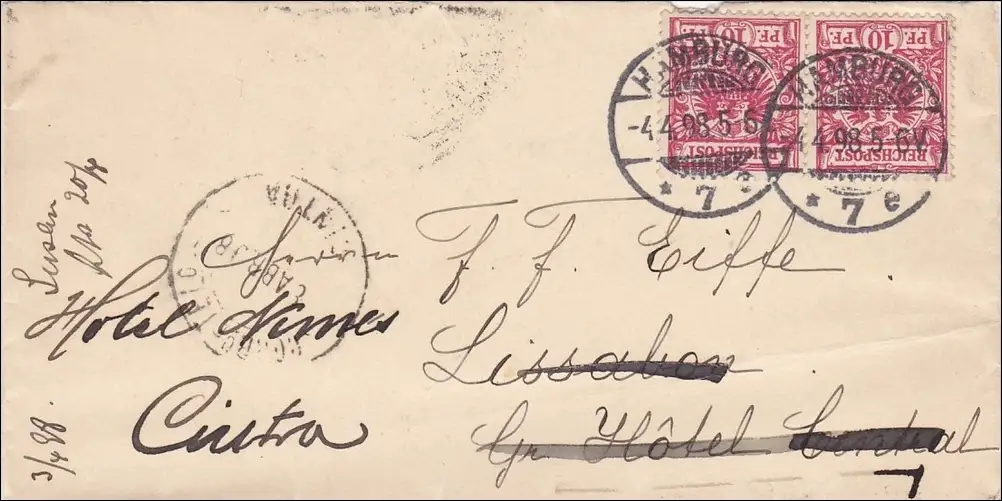 PF. 10 PF.
REICHSPOST
PF. 10 PF.
REICHSPOST
HAMBURG
-4.4.98.5-6
* 7 e
HAMBURG
4.4.98.5-6N.
* 7 e
Herrn F. F. Eiffe
Lissabon
Gr Hôtel Central
Hotel Nunes
Cintra
20/4
3/4 98.
ABR 98